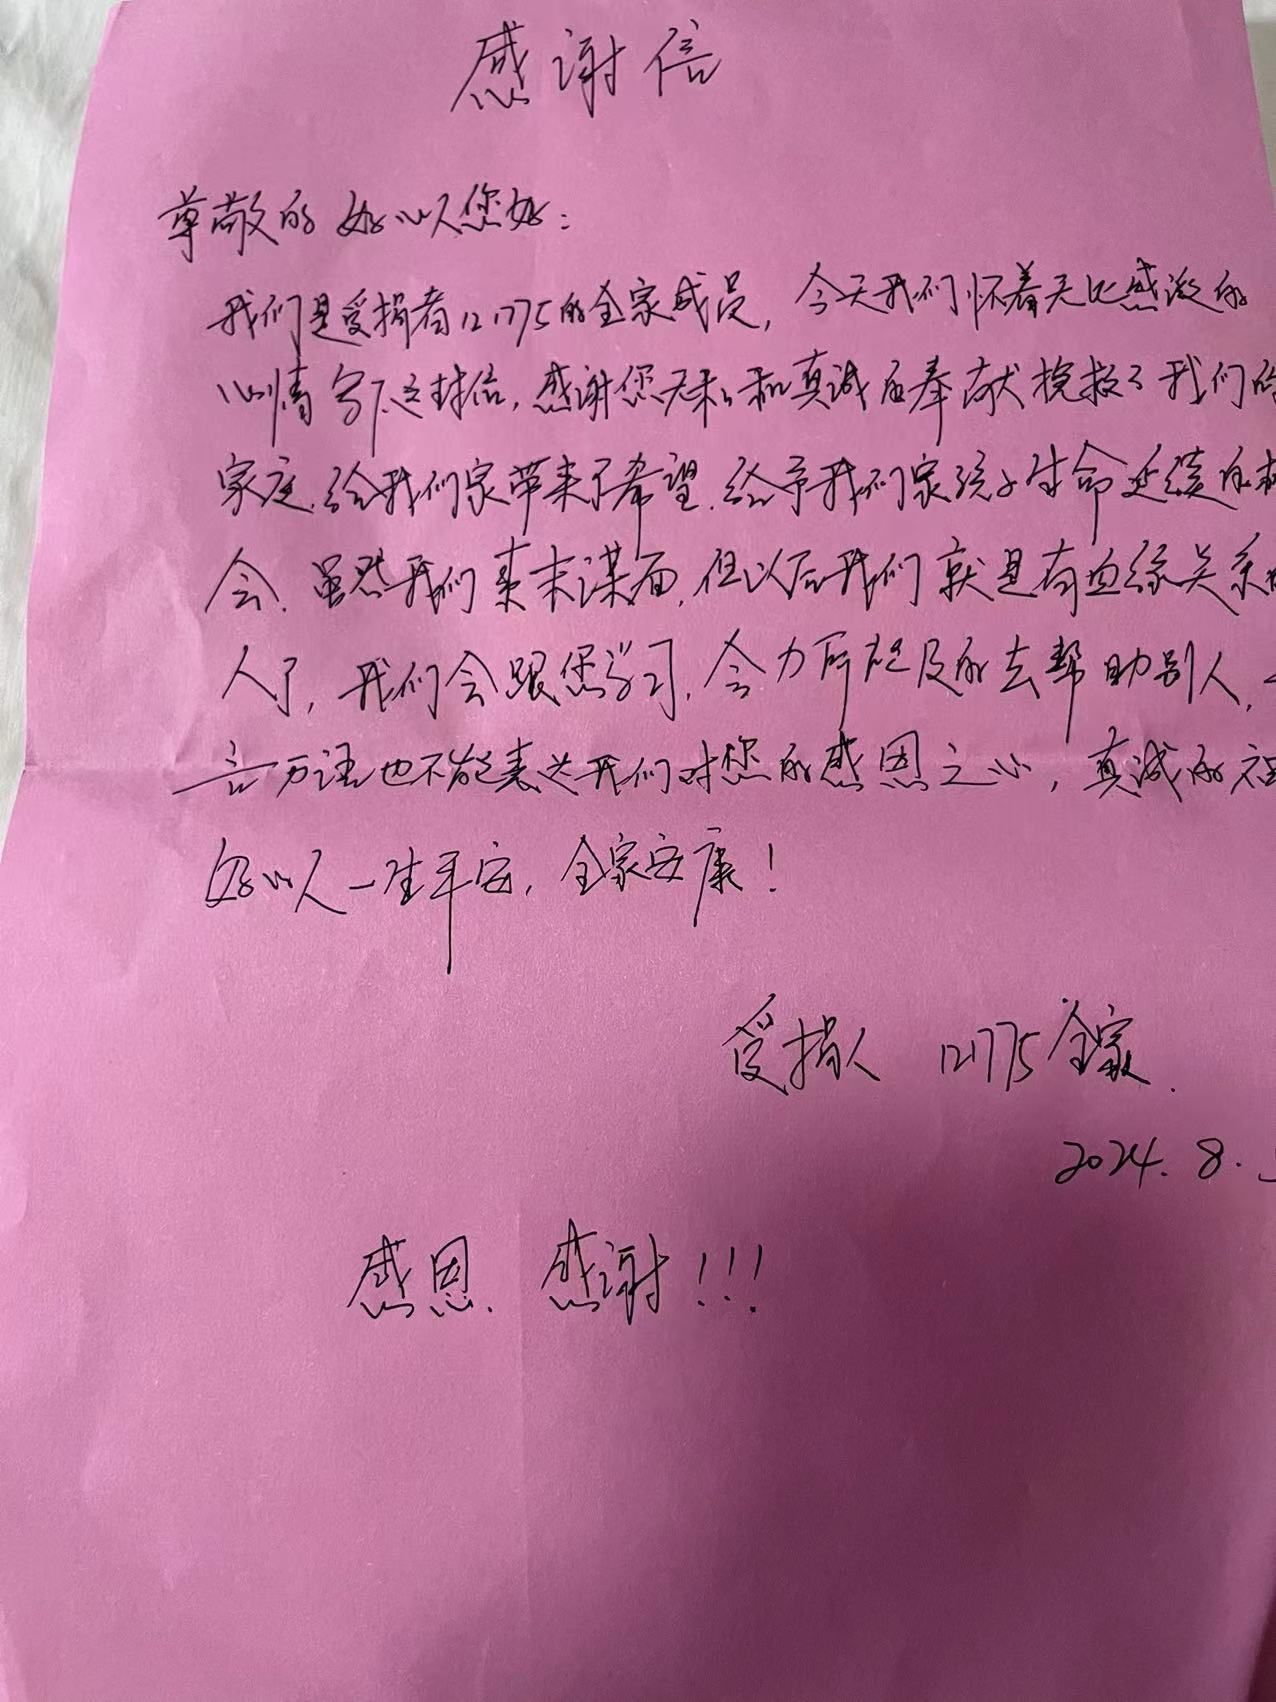 感谢信
尊敬的好心人您好:
我们是受捐者12175的全家成员,今天我们怀着无比感激的
心情写下这封信,感谢您无私和真诚的奉献挽救了我们的
家庭.给我们家带来了希望.给予我们家孩子生命延续的
会.虽然我们素未谋面,但以后我们就是有血缘关系
人了,我们会跟您学习,会力所能及的去帮助别人,
言万语也不能表达我们对您的感恩之心,真诚的
好心人一生平安,全家安康!
受捐人 12175全家.
2024.8.
感恩.感谢!!!